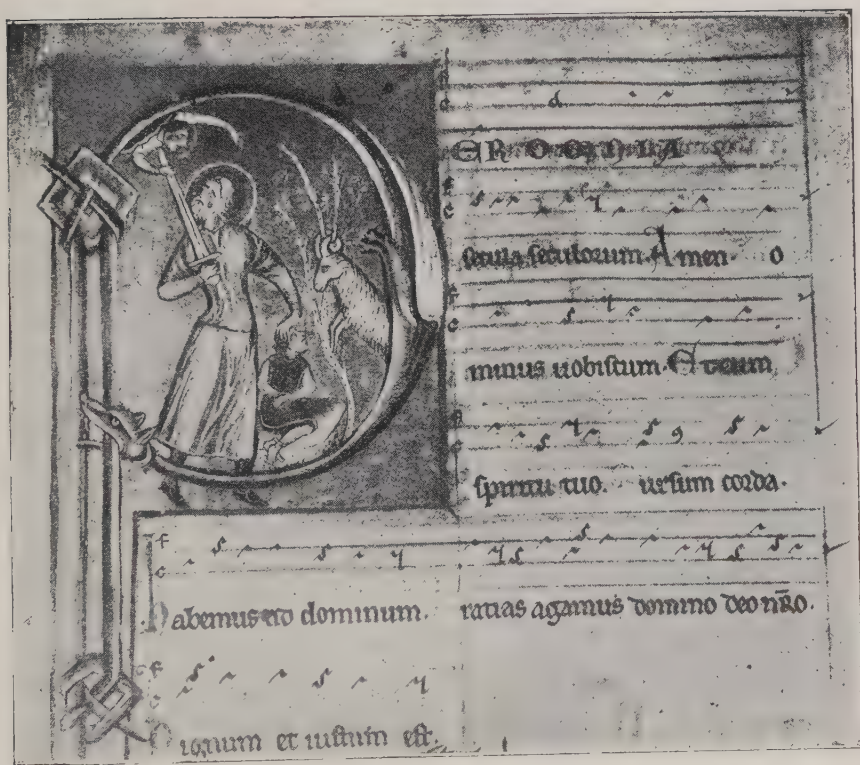 ER OMNIA
secula seculorum. Amen. o
minus uobiscum. Et cum
spiritu tuo. ursum corda.
abemus ad dominum. ratias agamus domino deo nr̄o.
ignum et iustum est.